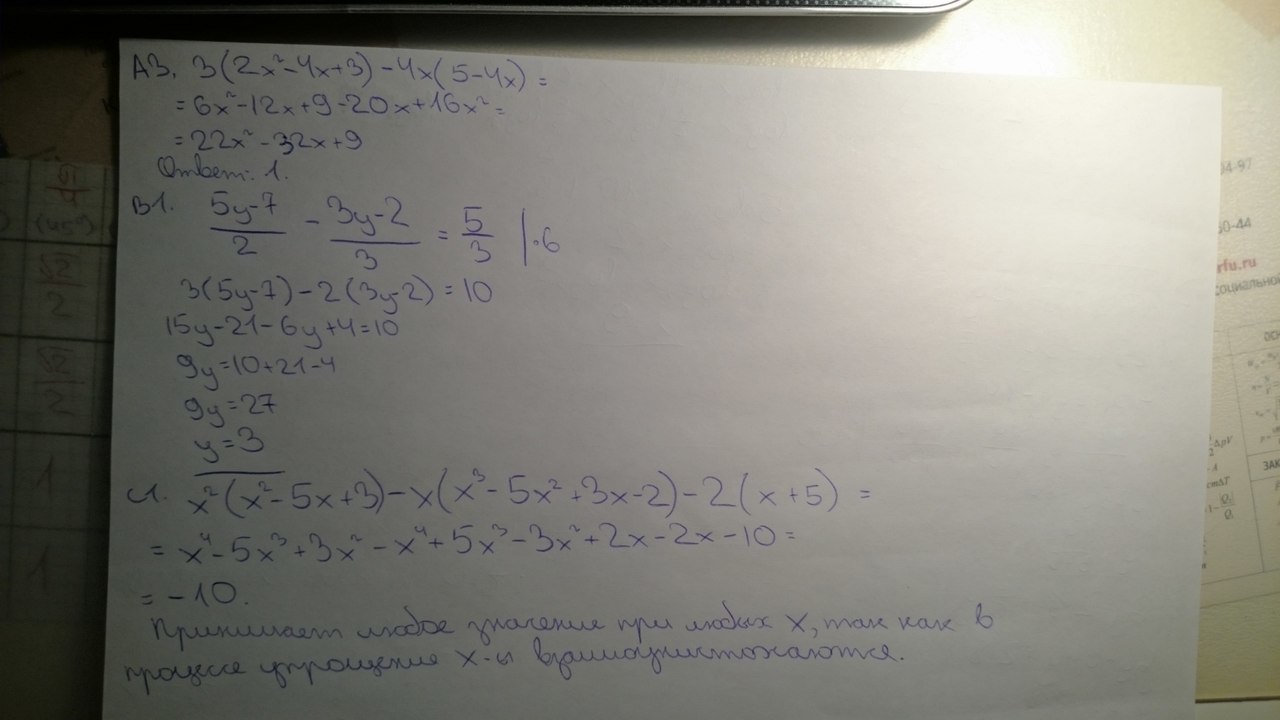 А3. 3(2x²-4x+3)-4x(5-4x) =
= 6x²-12x+9-20x+16x² =
= 22x²-32x+9
Ответ: 1.
В1. (5y-7)/2 - (3y-2)/3 = 5/3 |·6
3(5y-7)-2(3y-2)=10
15y-21-6y+4=10
9y=10+21-4
9y=27
y=3
С1. x²(x²-5x+3)-x(x³-5x²+3x-2)-2(x+5) =
= x⁴-5x³+3x²-x⁴+5x³-3x²+2x-2x-10 =
= -10.
Принимает любое значение при любых x, так как в
процессе упрощение x-ы взаимоуничтожаются.
√2/2
√2/2
1
1
04-97
50-44
rfu.ru
социальной
ЗАК